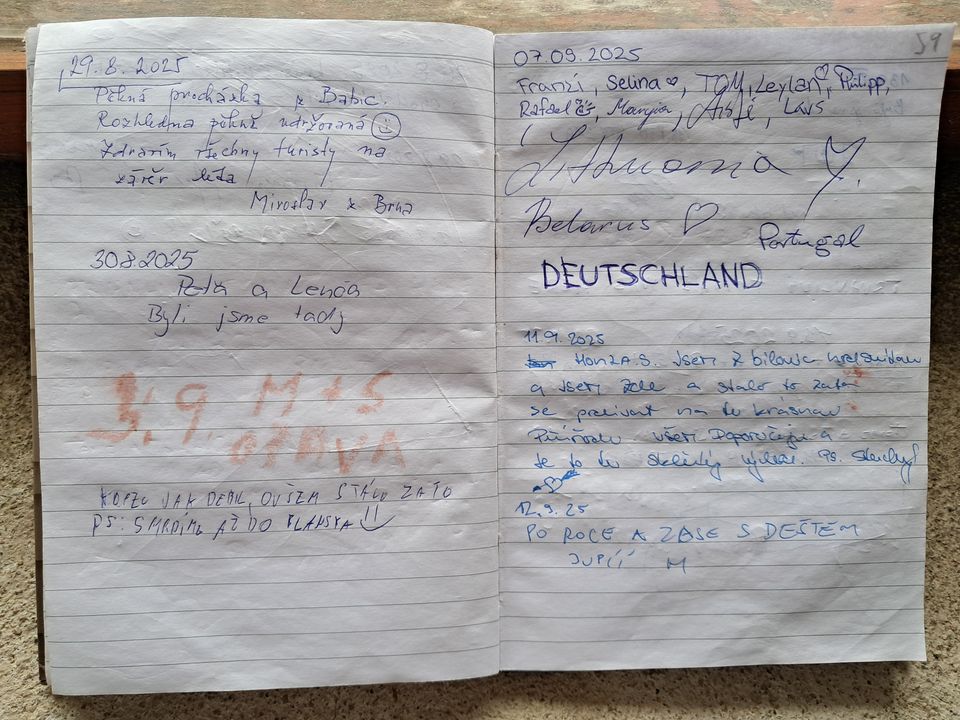 29.8.2025
Pěkná procházka z Babic.
Rozhledna pěkně udržovaná
Zdravím všechny turisty na
závěr léta
Miroslav z Brna
30.8.2025
Petr a Lenča
Byli jsme tady
3.9. M + S
OPAVA
KOPEC JAK DEBIL, OVŠEM STÁLO ZATO
PS: SMRDÍME AŽ DO BLANSKA
59
07.09.2025
Franzi, Selina, TOM, Leylan, Philipp,
Rafael, Maryia, LAWS
Lithuania
Belarus
Portugal
DEUTSCHLAND
11.9.2025
HONZA.S. Jseti z bílovic
a jseti zde a stalo to zato
se podívat na tu krásnou
Přírodu všem Doporučuju a
je to tu výhled. Ps.
12.9.25
PO ROCE A ZASE S DEŠTĚM
JUPÍÍ M